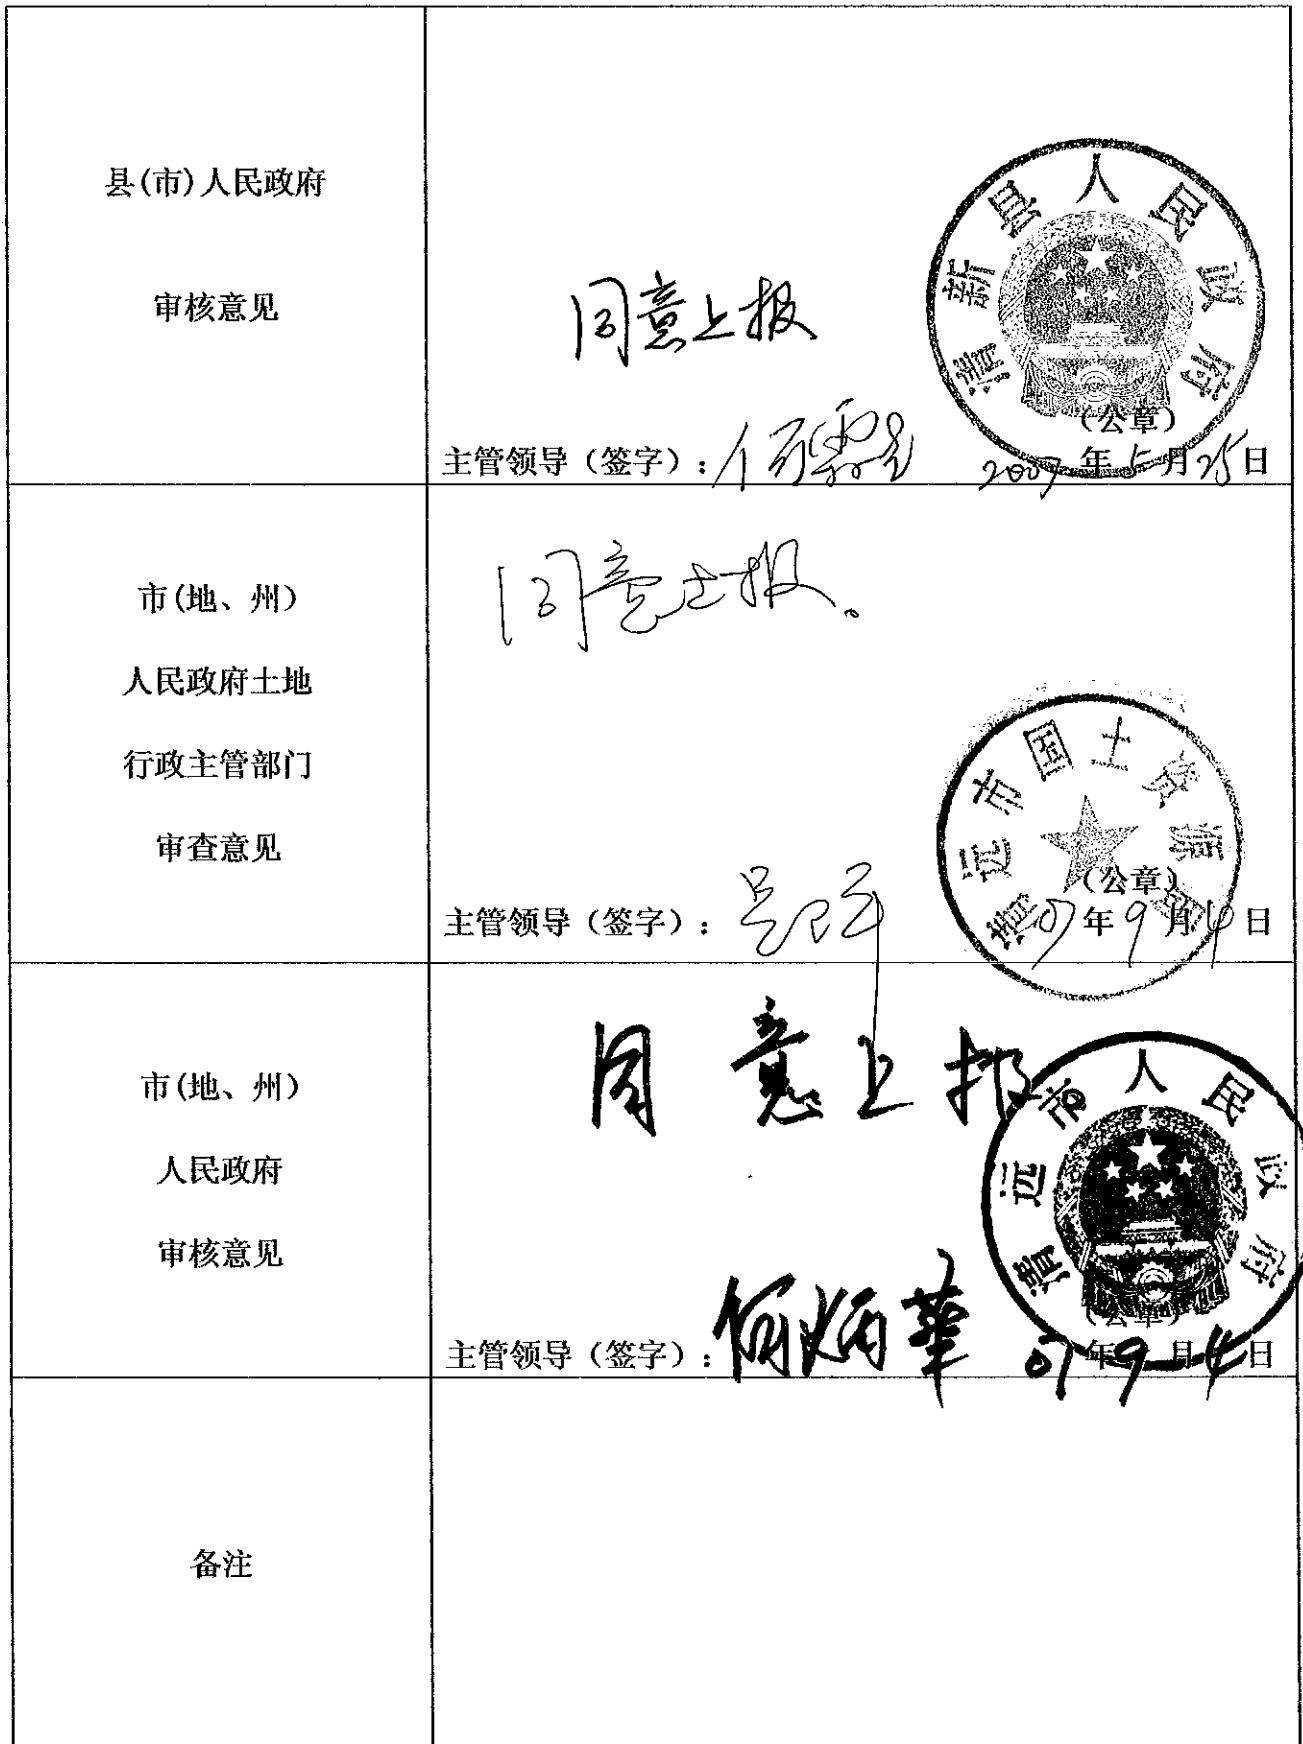 县(市)人民政府
审核意见
同意上报
清新县人民政府
(公章)
主管领导（签字）：
2007年5月25日
市(地、州)
人民政府土地
行政主管部门
审查意见
同意上报。
清远市国土资源局
(公章)
主管领导（签字）：
07年9月4日
市(地、州)
人民政府
审核意见
同意上报
清远市人民政府
(公章)
主管领导（签字）：何炳華
07年9月4日
备注